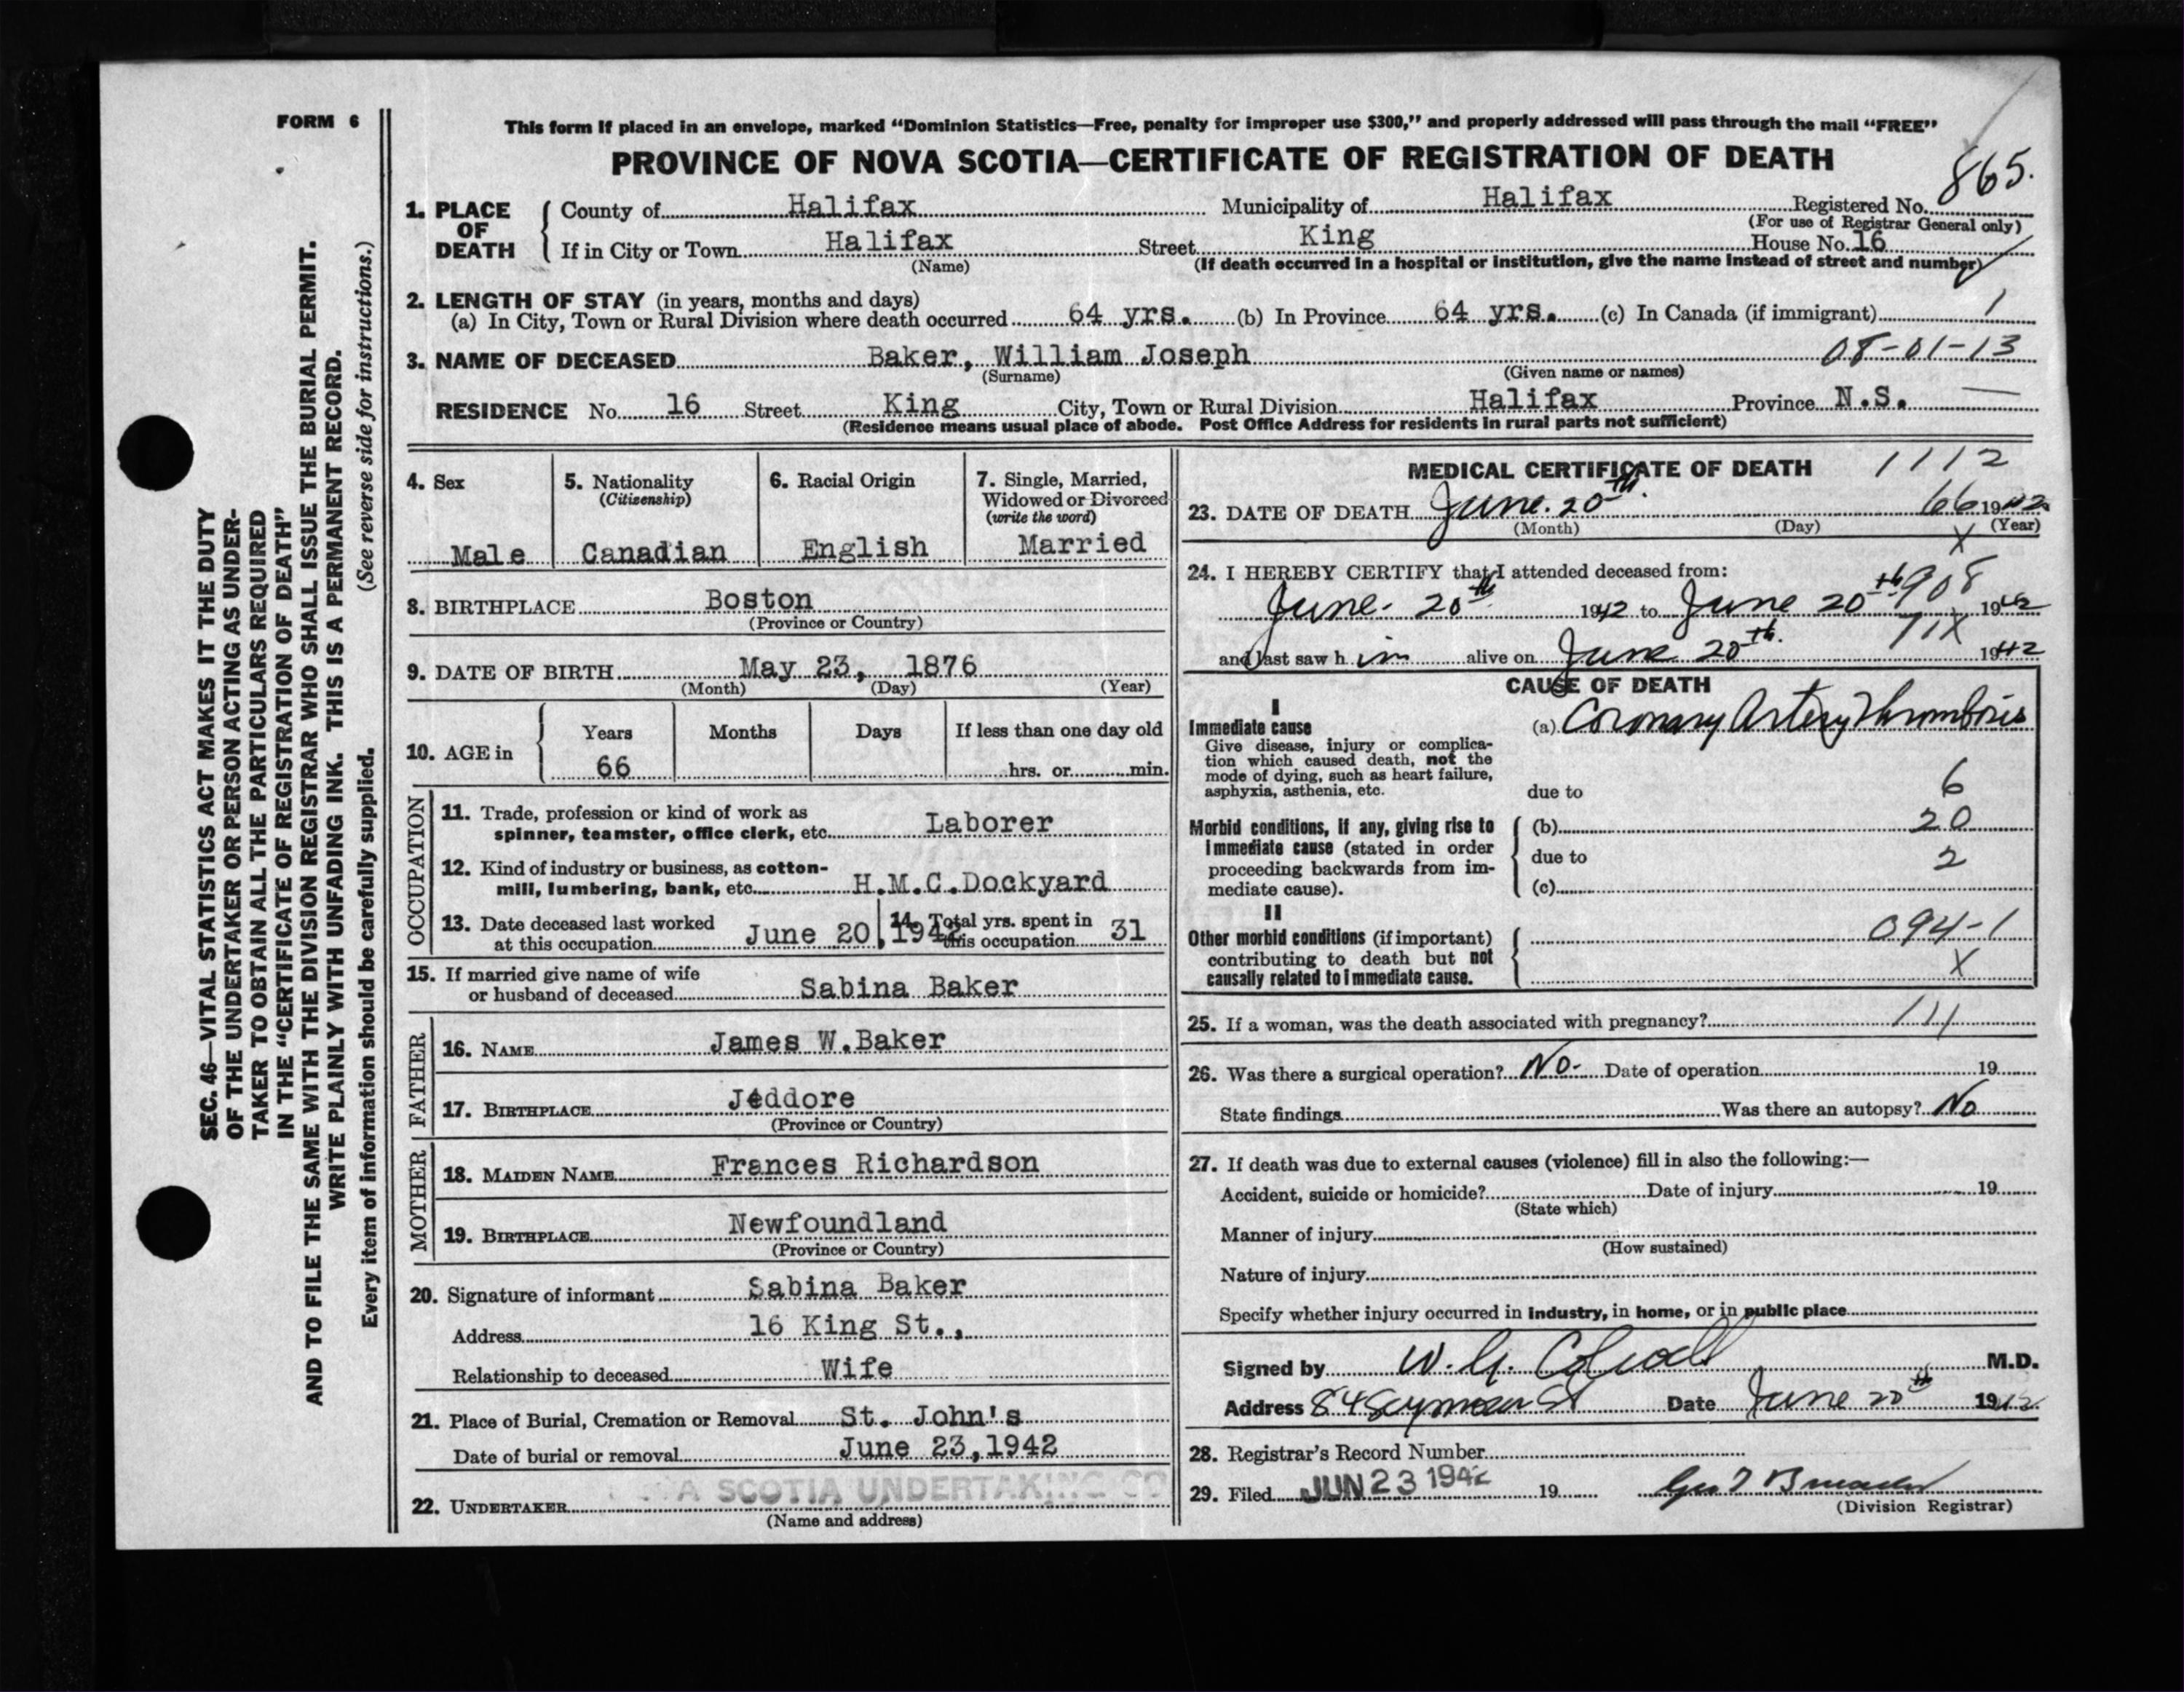 FORM 6
This form if placed in an envelope, marked “Dominion Statistics—Free, penalty for improper use $300,” and properly addressed will pass through the mail “FREE”
PROVINCE OF NOVA SCOTIA—CERTIFICATE OF REGISTRATION OF DEATH
865.
1. PLACE OF DEATH
County of Halifax Municipality of Halifax Registered No.
(For use of Registrar General only)
If in City or Town Halifax Street King House No. 16
(Name) (If death occurred in a hospital or institution, give the name instead of street and number)
2. LENGTH OF STAY (in years, months and days)
(a) In City, Town or Rural Division where death occurred 64 yrs. (b) In Province 64 yrs. (c) In Canada (if immigrant) 1
3. NAME OF DECEASED Baker, William Joseph 08-01-13
(Surname) (Given name or names)
RESIDENCE No. 16 Street King City, Town or Rural Division Halifax Province N.S.
(Residence means usual place of abode. Post Office Address for residents in rural parts not sufficient)
4. Sex
Male
5. Nationality
(Citizenship)
Canadian
6. Racial Origin
English
7. Single, Married,
Widowed or Divorced
(write the word)
Married
8. BIRTHPLACE Boston
(Province or Country)
9. DATE OF BIRTH May 23, 1876
(Month) (Day) (Year)
10. AGE in
Years Months Days If less than one day old
66 hrs. or min.
OCCUPATION
11. Trade, profession or kind of work as
spinner, teamster, office clerk, etc. Laborer
12. Kind of industry or business, as cotton-
mill, lumbering, bank, etc. H.M.C.Dockyard
13. Date deceased last worked
at this occupation June 20,1942
14. Total yrs. spent in
this occupation 31
15. If married give name of wife
or husband of deceased Sabina Baker
FATHER
16. NAME James W.Baker
17. BIRTHPLACE Jeddore
(Province or Country)
MOTHER
18. MAIDEN NAME Frances Richardson
19. BIRTHPLACE Newfoundland
(Province or Country)
20. Signature of informant Sabina Baker
Address 16 King St.,
Relationship to deceased Wife
21. Place of Burial, Cremation or Removal St. John's
Date of burial or removal June 23,1942
A SCOTIA UNDERTAKING CO
22. UNDERTAKER
(Name and address)
MEDICAL CERTIFICATE OF DEATH 1112
23. DATE OF DEATH June. 20th. 66 1942
(Month) (Day) (Year)
X
24. I HEREBY CERTIFY that I attended deceased from:
908
June - 20th 1942 to June 20th 1942
71X
and last saw h im alive on June 20th. 1942
CAUSE OF DEATH
I
Immediate cause (a) Coronary Artery Thrombosis
Give disease, injury or complica-
tion which caused death, not the
mode of dying, such as heart failure,
asphyxia, asthenia, etc.
due to 6
Morbid conditions, if any, giving rise to
immediate cause (stated in order
proceeding backwards from im-
mediate cause).
(b) 20
due to 2
(c)
II
Other morbid conditions (if important)
contributing to death but not
causally related to immediate cause.
094-1
X
25. If a woman, was the death associated with pregnancy? 111
26. Was there a surgical operation? No- Date of operation 19
State findings Was there an autopsy? No
27. If death was due to external causes (violence) fill in also the following:—
Accident, suicide or homicide? Date of injury 19
(State which)
Manner of injury
(How sustained)
Nature of injury
Specify whether injury occurred in industry, in home, or in public place
Signed by W. G. Colwell M.D.
Address 84 Seymour St Date June 20th 1942
28. Registrar's Record Number
29. Filed JUN 23 1942 19
(Division Registrar)
SEC. 46—VITAL STATISTICS ACT MAKES IT THE DUTY
OF THE UNDERTAKER OR PERSON ACTING AS UNDER-
TAKER TO OBTAIN ALL THE PARTICULARS REQUIRED
IN THE “CERTIFICATE OF REGISTRATION OF DEATH”
AND TO FILE THE SAME WITH THE DIVISION REGISTRAR WHO SHALL ISSUE THE BURIAL PERMIT.
WRITE PLAINLY WITH UNFADING INK. THIS IS A PERMANENT RECORD.
Every item of information should be carefully supplied. (See reverse side for instructions.)